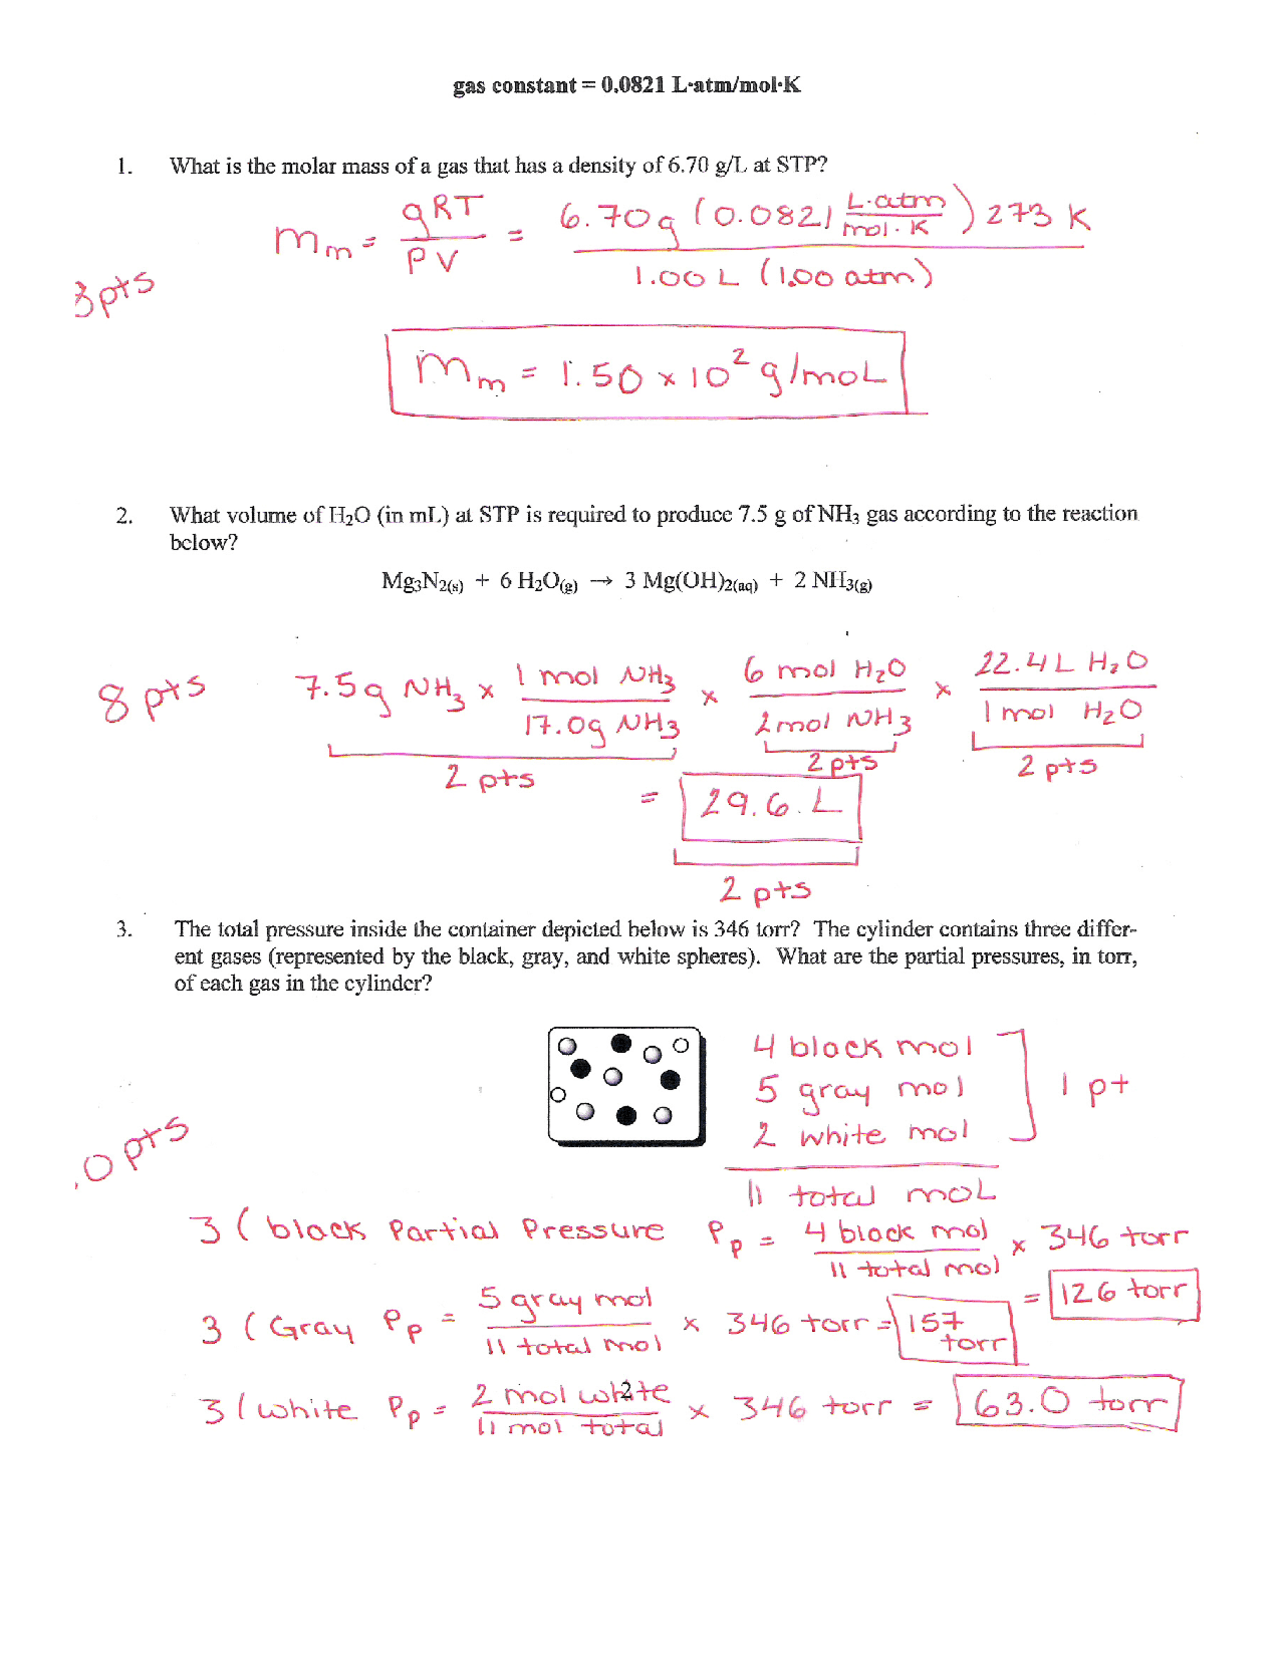 gas constant = 0.0821 L·atm/mol·K
1. What is the molar mass of a gas that has a density of 6.70 g/L at STP?
Mm = gRT / PV = 6.70g (0.0821 L·atm / mol·K) 273 K / 1.00 L (1.00 atm)
3 pts
Mm = 1.50 × 10² g/mol
2. What volume of H₂O (in mL) at STP is required to produce 7.5 g of NH₃ gas according to the reaction
below?
Mg₃N₂(s) + 6 H₂O(g) → 3 Mg(OH)₂(aq) + 2 NH₃(g)
8 pts 7.5g NH₃ × 1 mol NH₃ / 17.0g NH₃ × 6 mol H₂O / 2 mol NH₃ × 22.4 L H₂O / 1 mol H₂O
2 pts 2 pts 2 pts
= 29.6 L
2 pts
3. The total pressure inside the container depicted below is 346 torr? The cylinder contains three differ-
ent gases (represented by the black, gray, and white spheres). What are the partial pressures, in torr,
of each gas in the cylinder?
4 block mol
5 gray mol
1 pt
2 white mol
0 pts
11 total mol
3 ( black Partial Pressure Pp = 4 block mol / 11 total mol × 346 torr
= 126 torr
3 ( Gray Pp = 5 gray mol / 11 total mol × 346 torr = 157 torr
3 ( white Pp = 2 mol white / 11 mol total × 346 torr = 63.0 torr
2